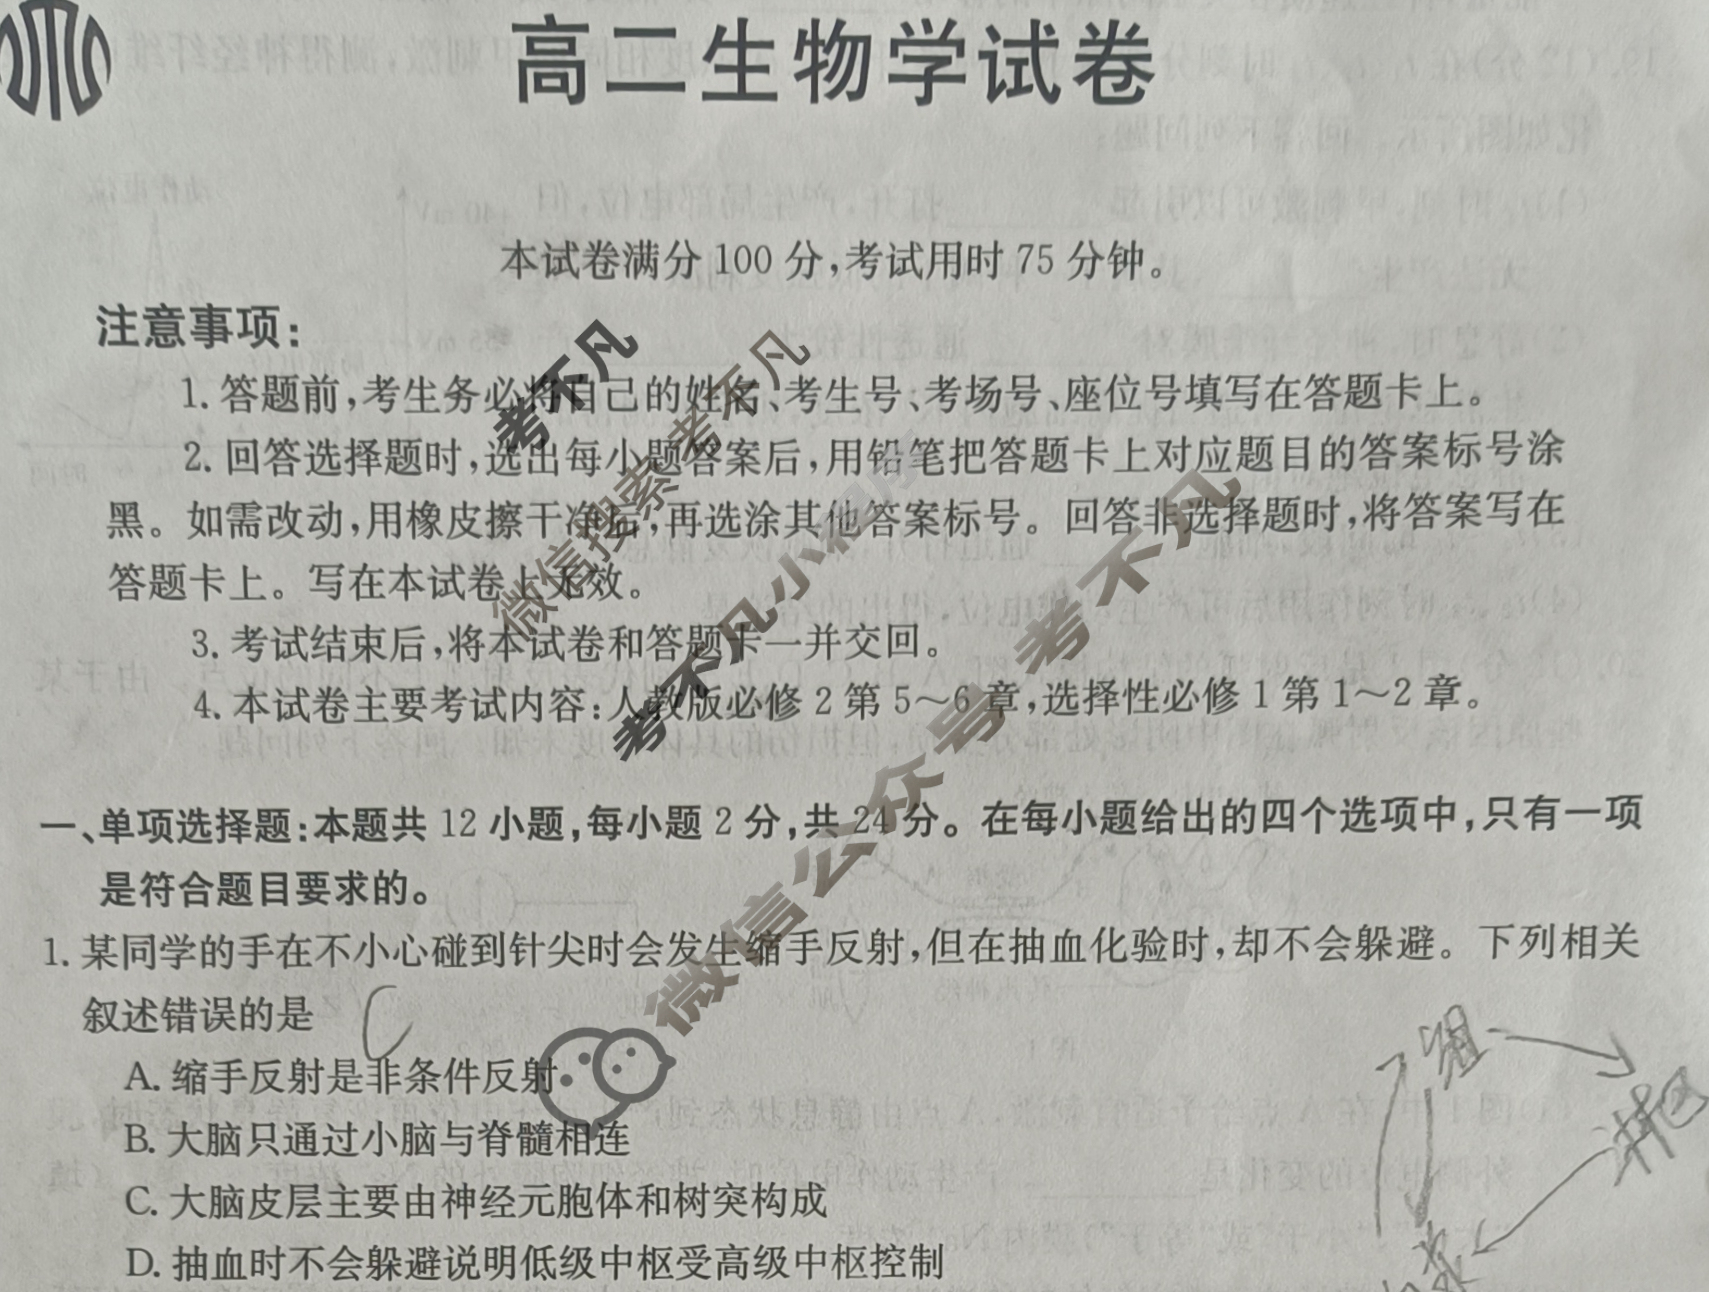 高二生物学试卷
本试卷满分 100 分,考试用时 75 分钟。
注意事项:
1. 答题前,考生务必将自己的姓名、考生号、考场号、座位号填写在答题卡上。
2. 回答选择题时,选出每小题答案后,用铅笔把答题卡上对应题目的答案标号涂
黑。如需改动,用橡皮擦干净后,再选涂其他答案标号。回答非选择题时,将答案写在
答题卡上。写在本试卷上无效。
3. 考试结束后,将本试卷和答题卡一并交回。
4. 本试卷主要考试内容:人教版必修 2 第 5～6 章,选择性必修 1 第 1～2 章。
一、单项选择题:本题共 12 小题,每小题 2 分,共 24 分。在每小题给出的四个选项中,只有一项
是符合题目要求的。
1. 某同学的手在不小心碰到针尖时会发生缩手反射,但在抽血化验时,却不会躲避。下列相关
叙述错误的是 C
A. 缩手反射是非条件反射
B. 大脑只通过小脑与脊髓相连
C. 大脑皮层主要由神经元胞体和树突构成
D. 抽血时不会躲避说明低级中枢受高级中枢控制
考不凡
微信搜索 考不凡
考不凡小程序
微信公众号 考不凡